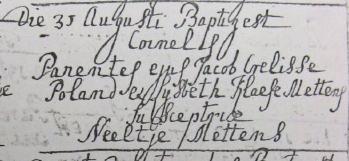 Die 31 Augusti Baptizest
Cornelis
Parentes ejus Jacob Crelisse
Poland et Lijsbeth Klaese Mettens
Susceptrix
Neeltje Mettens